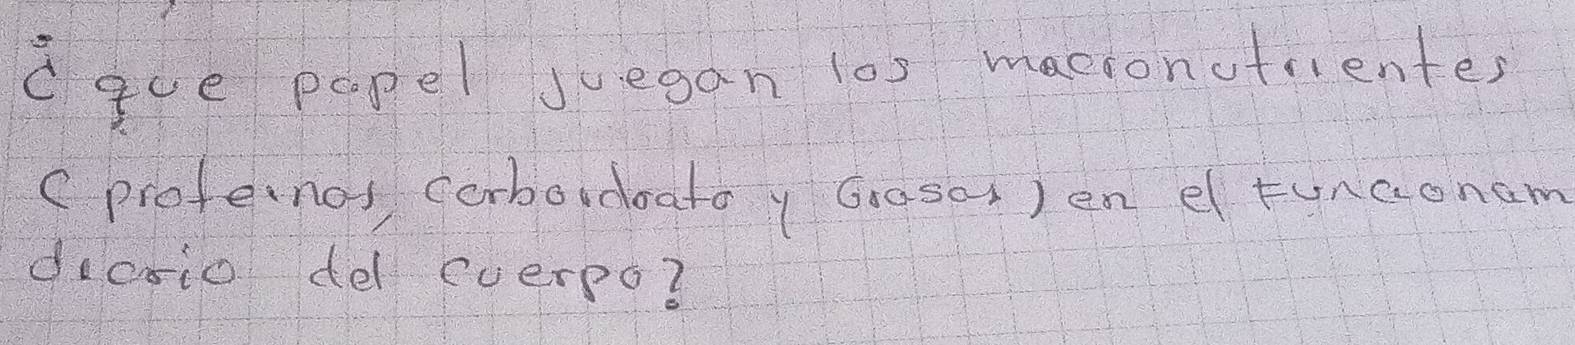 ¿que papel juegan los macronutrientes
(proteinas, carbohidrato y Grasas) en el funcionam
diario del cuerpo?